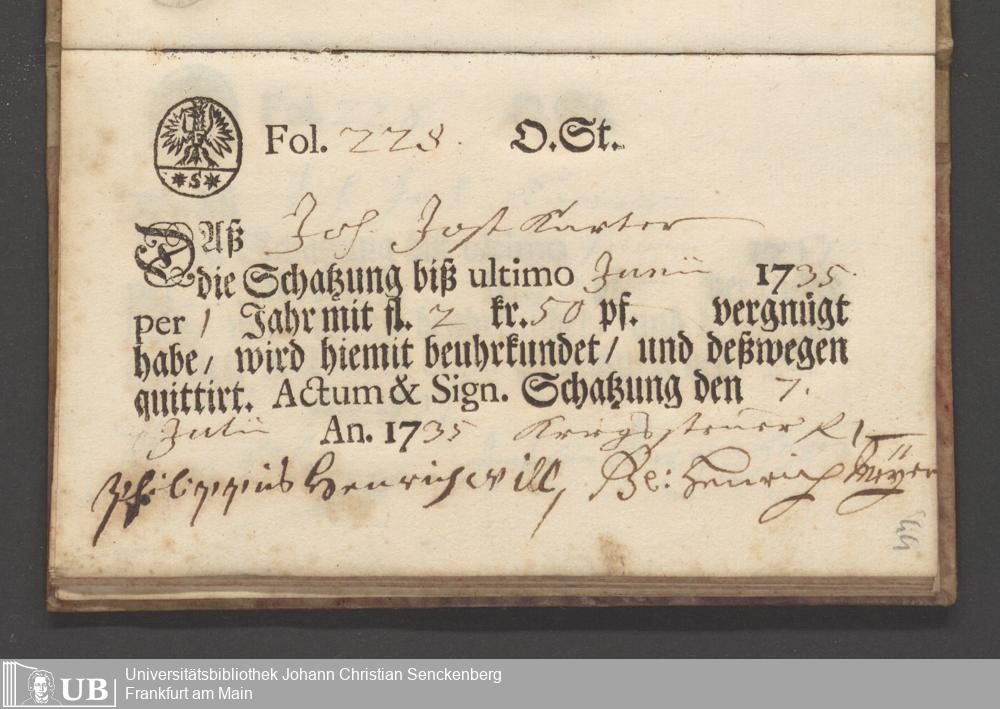 Fol. 228. O.St.
*S*
Daß Joh. Jost Karter
die Schatzung biß ultimo Junii 1735.
per 1 Jahr mit fl. 2 kr. 50 pf. – vergnügt
habe / wird hiemit beuhrkundet / und deßwegen
quittirt. Actum & Sign. Schatzung den 7.
Julii An. 1735 Kriegssteuer f 1
Philippus Henrich Will, Bl: Henrich Meÿer
44
UB Universitätsbibliothek Johann Christian Senckenberg
Frankfurt am Main